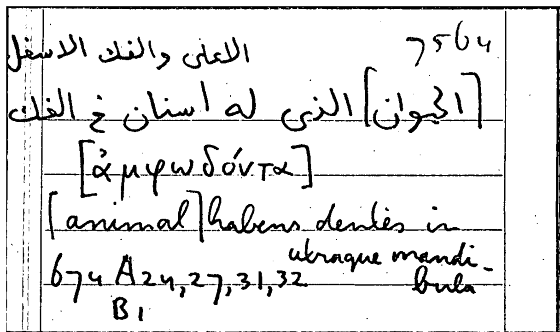 7564
الاعلى والفك الاسفل
[الحيوان] الذى له أسنان فى الفك
[ἀμφωδόντα]
[animal] habens dentes in
utraque mandi-
bula
674 A24, 27, 31, 32
B1